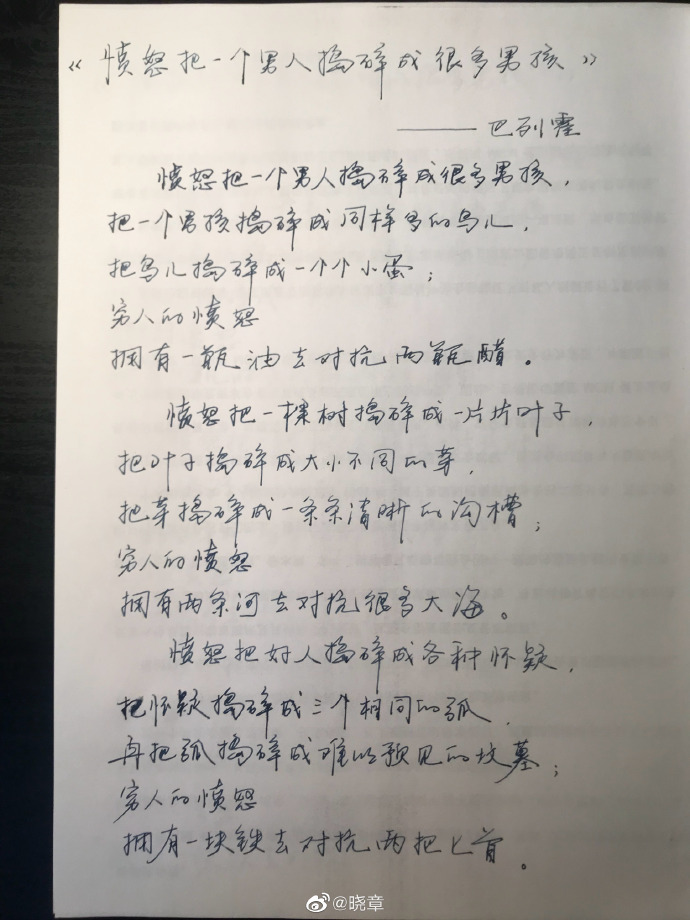 《愤怒把一个男人捣碎成很多男孩》
——巴列霍
愤怒把一个男人捣碎成很多男孩,
把一个男孩捣碎成同样多的鸟儿,
把鸟儿捣碎成一个个小蛋;
穷人的愤怒
拥有一瓶油去对抗两瓶醋。
愤怒把一棵树捣碎成一片片叶子,
把叶子捣碎成大小不同的芽,
把芽捣碎成一条条清晰的沟槽;
穷人的愤怒
拥有两条河去对抗很多大海。
愤怒把好人捣碎成各种怀疑,
把怀疑捣碎成三个相同的弧,
再把弧捣碎成难以预见的坟墓;
穷人的愤怒
拥有一块铁去对抗两把匕首。
@晓章